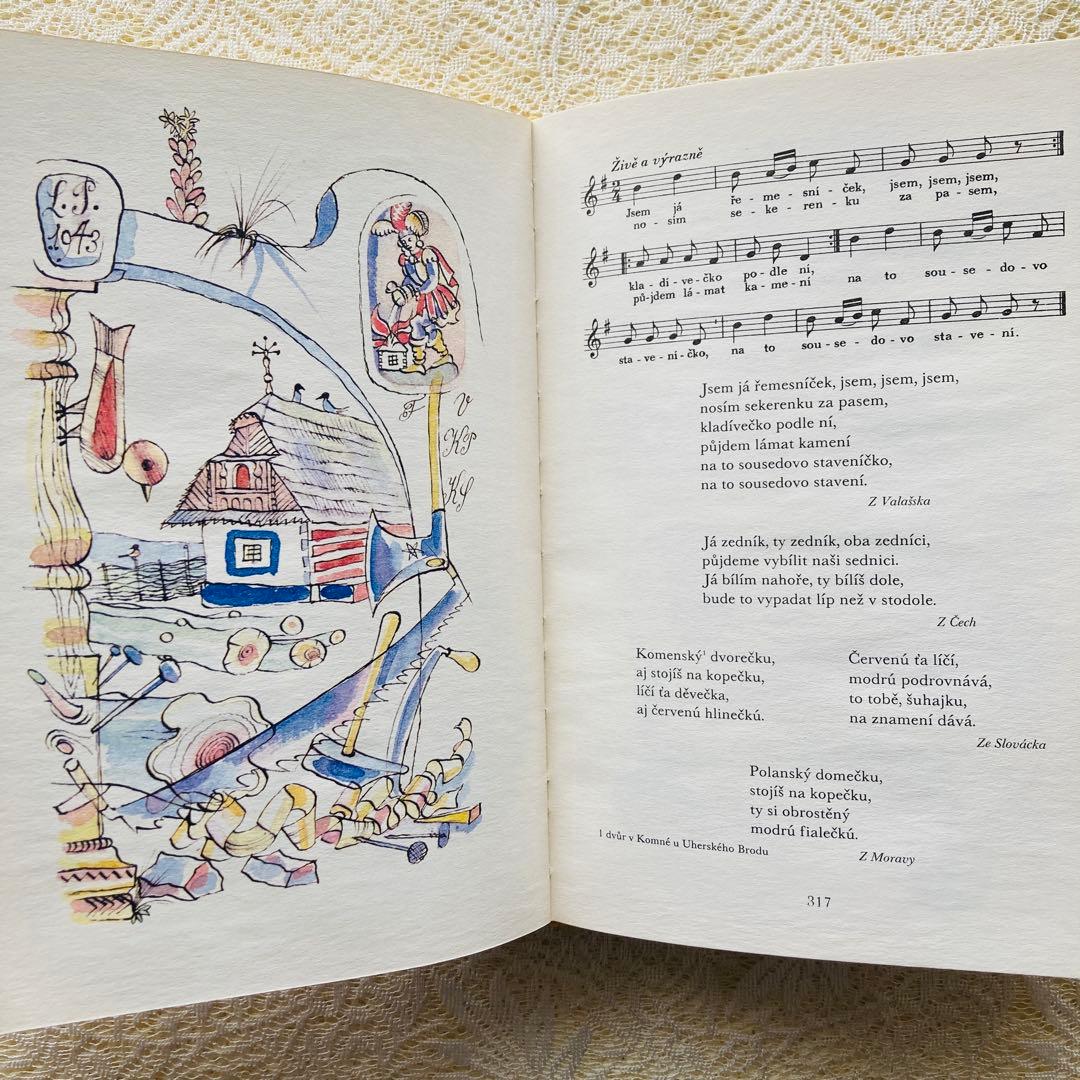 L. P.
1943
F V
KP
KS
Živě a výrazně
2
4
Jsem já ře - me - sní - ček, jsem, jsem, jsem,
no - sím se - ke - ren - ku za pa - sem,
kla - dí - ve - čko po - dle ní, na to sou - se - do - vo
půj - dem lá - mat ka - me - ní
sta - ve - ní - čko, na to sou - se - do - vo sta - ve - ní.
Jsem já řemesníček, jsem, jsem, jsem,
nosím sekerenku za pasem,
kladívečko podle ní,
půjdem lámat kamení
na to sousedovo staveníčko,
na to sousedovo stavení.
Z Valašska
Já zedník, ty zedník, oba zedníci,
půjdeme vybílit naši sednici.
Já bílím nahoře, ty bílíš dole,
bude to vypadat líp než v stodole.
Z Čech
Komenský¹ dvorečku,
aj stojíš na kopečku,
líčí ťa děvečka,
aj červenú hlinečkú.
Červenú ťa líčí,
modrú podrovnává,
to tobě, šuhajku,
na znamení dává.
Ze Slovácka
Polanský domečku,
stojíš na kopečku,
ty si obrostěný
modrú fialečkú.
Z Moravy
1 dvůr v Komné u Uherského Brodu
317